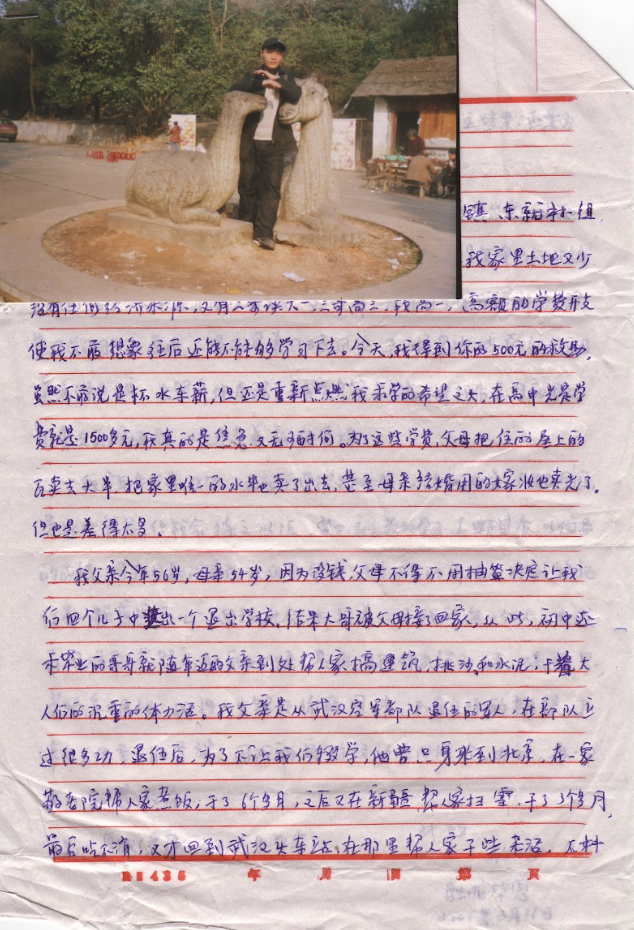 镇、东新村一组
我家里土地又少
高额的学费开支
使我不敢想象往后还能不能够学习下去。今天，我得到你的500元的救助，
虽然不能说是杯水车薪，但还是重新点燃我求学的希望之火，在高中光是学
费就是1500多元，我真的是焦急又无可奈何。为了这些学费，父母把住的屋上的
瓦卖去大半，把家里唯一的水牛也卖了出去，甚至母亲结婚用的嫁妆也卖光了。
但也是差得太多。
我父亲今年56岁，母亲54岁，因为没钱，父母不得不用抽签决定让我
们四个儿子中一个退出学校，结果大哥被父母接了回家，从此，初中还
未毕业的哥哥就随年迈的父亲到处帮人家搞建筑，挑沙、和水泥，干着大
人们的沉重的体力活。我父亲是从武汉空军部队退伍的军人，在部队立
过很多功，退伍后，为了不让我们辍学，他曾只身来到北京，在一家
敬老院帮人家煮饭，干了6个多月，之后又在新疆帮人家扫雪，干了3个多月，
最后吃不消，又才回到武汉火车站，在那里帮人家干些杂活，不料
435 年 月 日 第 页